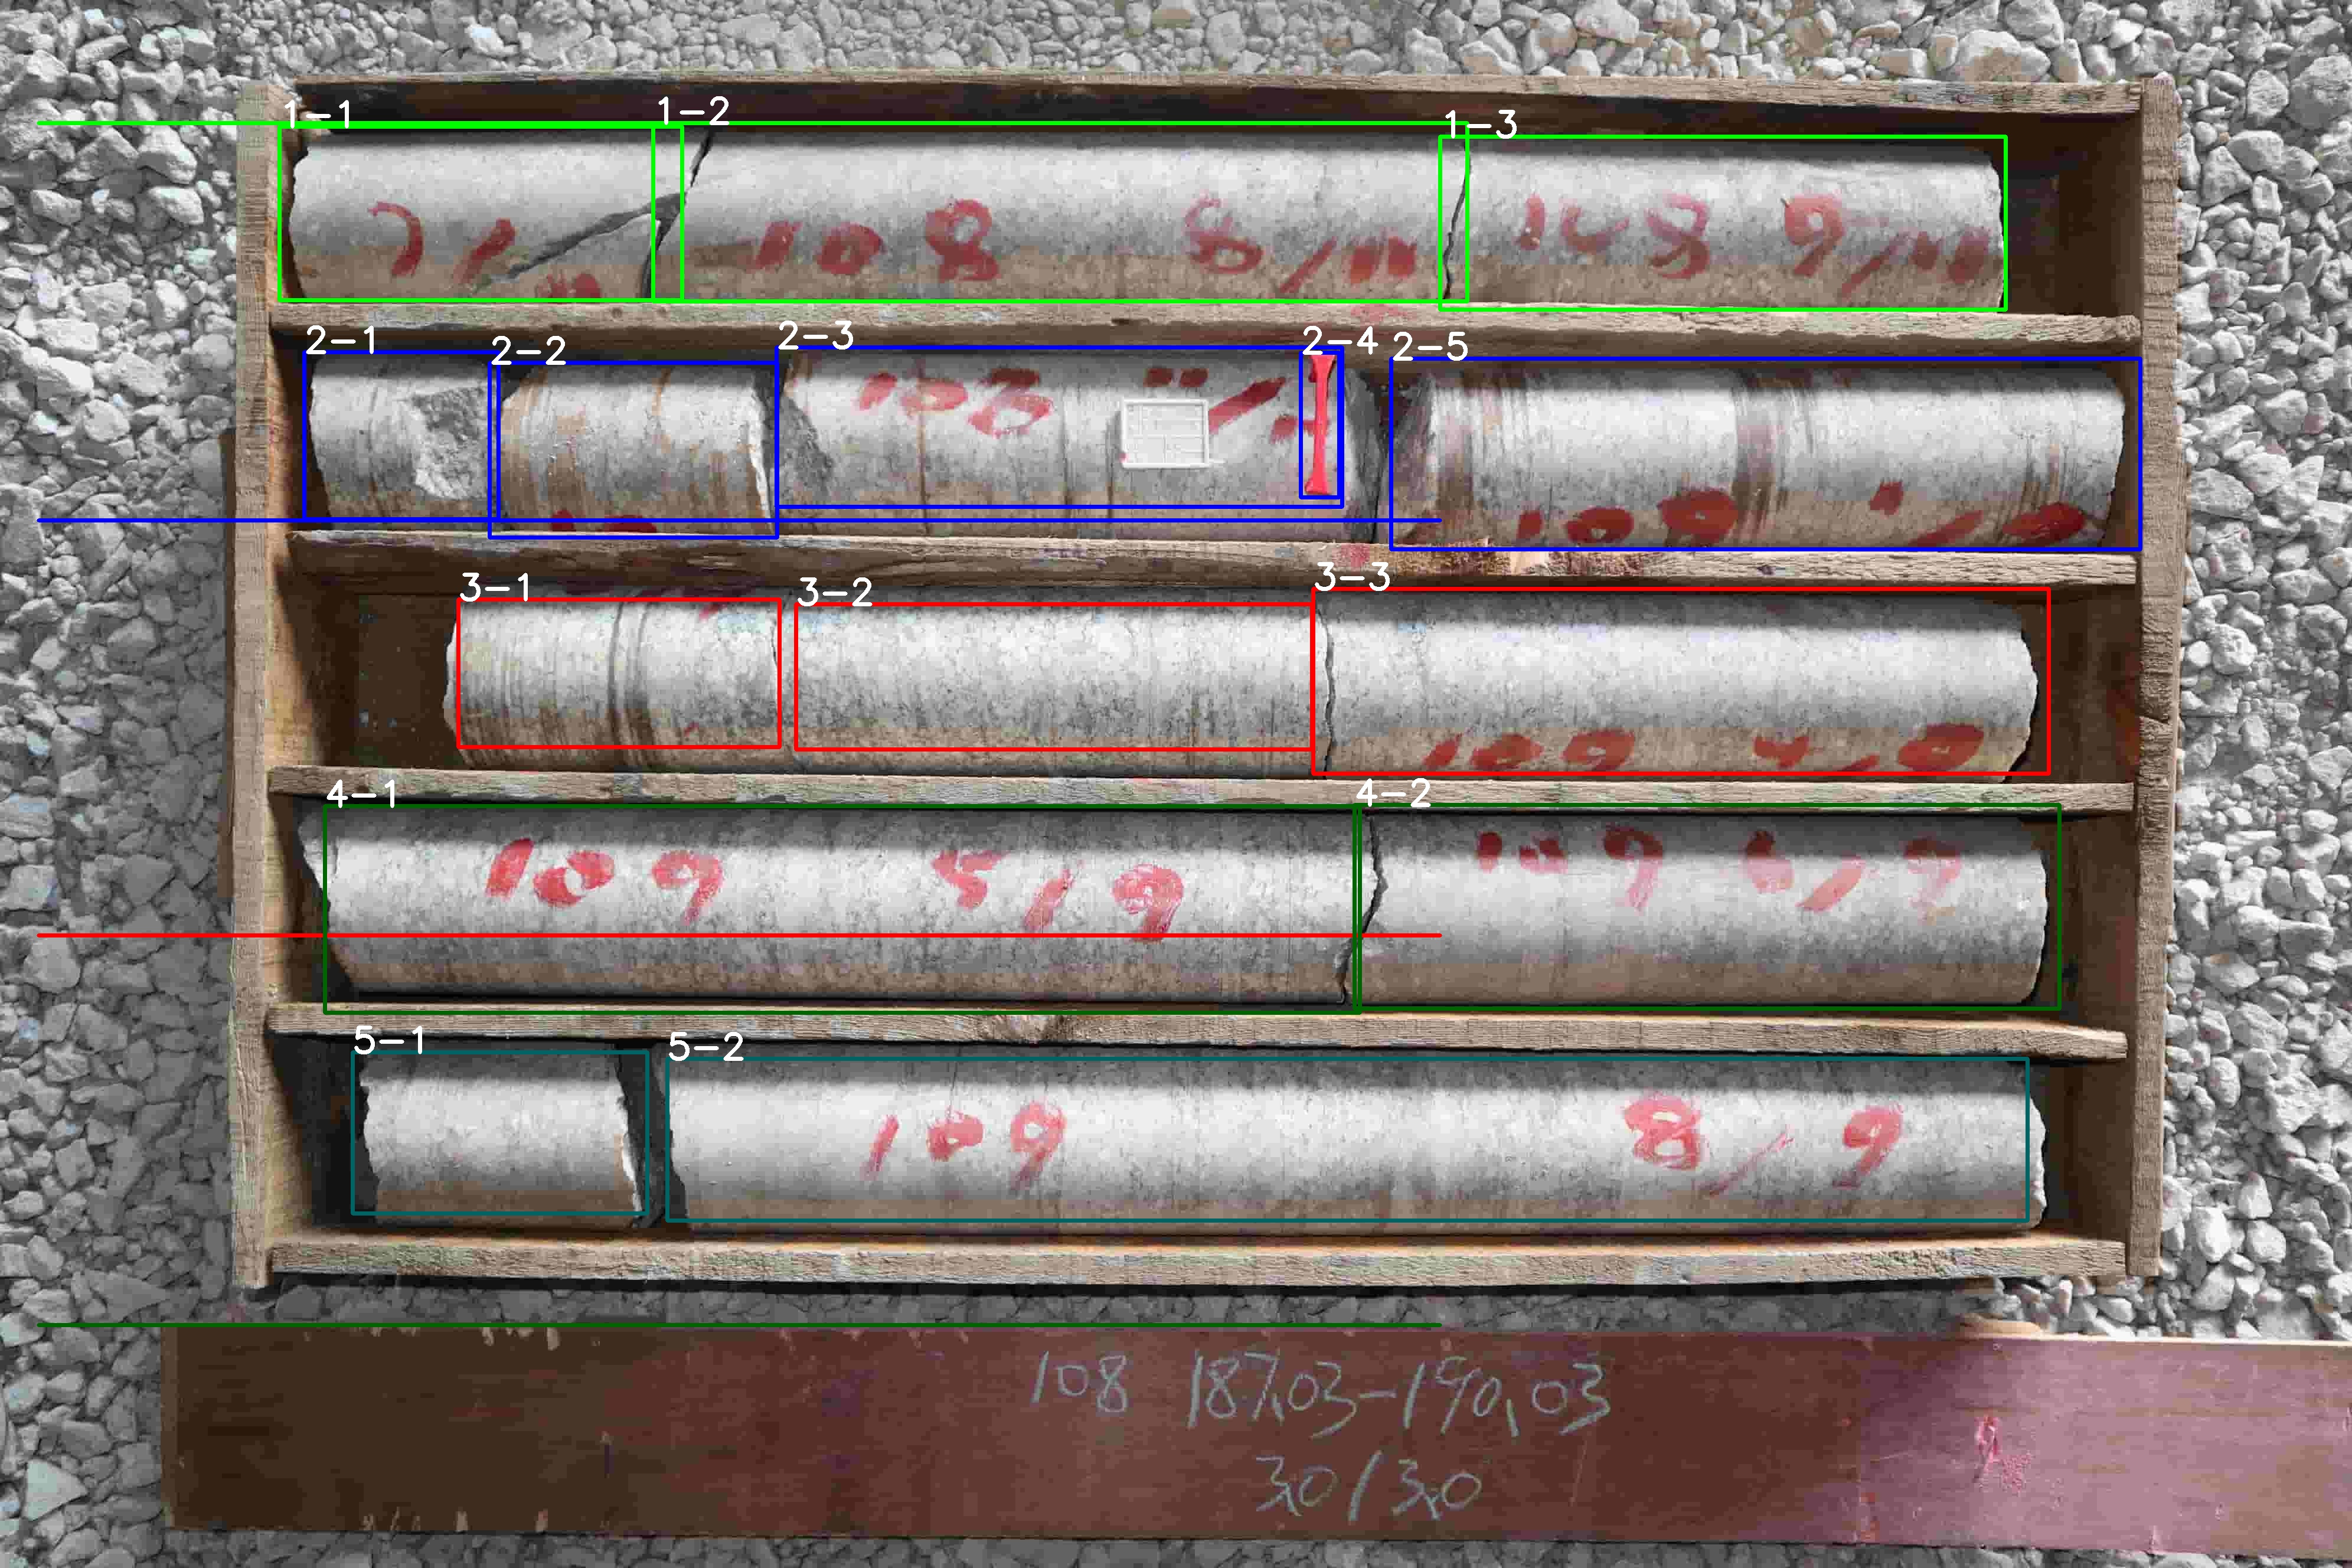 1-1 1-2 1-3
108 8/11 108 9/11
2-1 2-2 2-3 2-4 2-5
108 "/
3-1 3-2 3-3
109 4/9
4-1 4-2
109 5/9 109 6/9
5-1 5-2
109 8/9
108 187.03-190.03
3.0/3.0